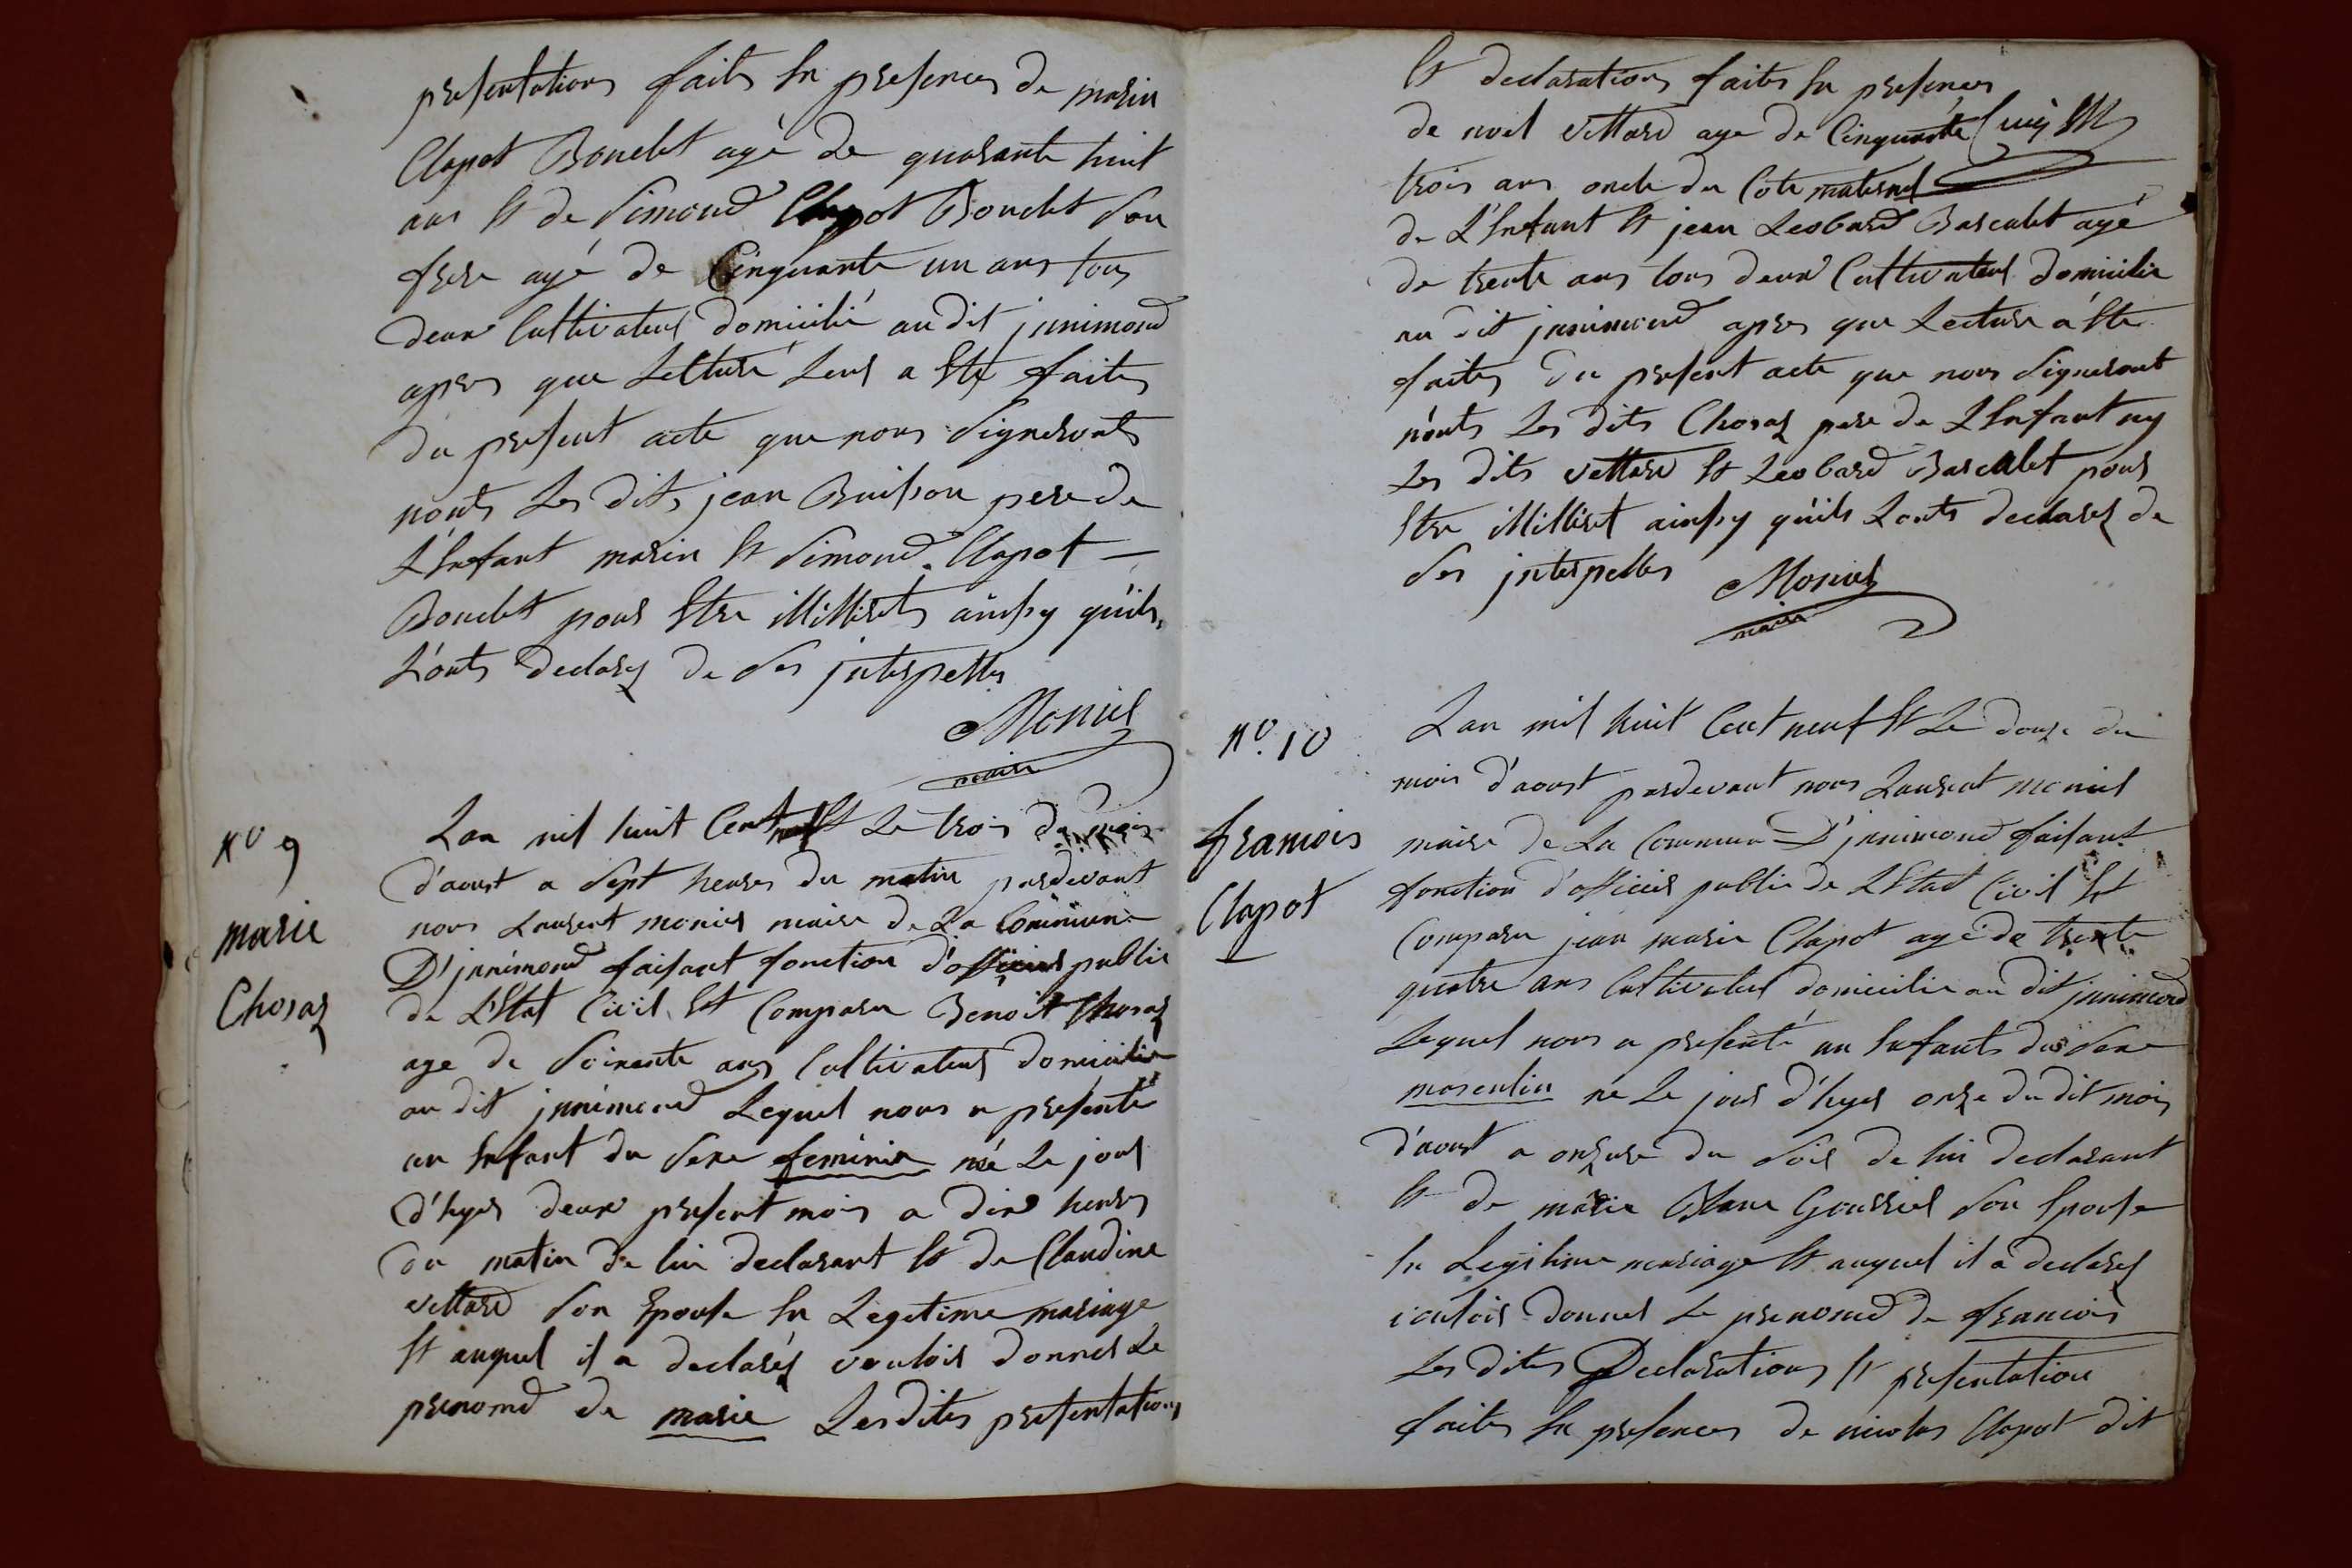 presentations faites En presences de marin
Clapot Bouclet agé de quarante huit
ans Et de Simond Clapot Bouclet son
frere agé de Cinquante un ans tous
deux Cultivateur domicilié au dit jnnimond
apres que Letture Leur a Ete faites
du present acte que nous Signeronts
nonts Les dits jean Buisson pere de
L'Enfant marin Et Simond Clapot —
Bouclet pour Etre illittirets ainssy qu'ils
L'onts declarez de Ses jnterpelles
Monier
maire
N° 9
marie
Choraz
Lan mil huit Cent neuf Et Le trois du mois
d'aoust a Sept heures du matin pardevant
nous Laurent monier maire de La Commune
D'jnnimond faisant fonction d'officier public
de L'Etat Civil Et Comparu Benoit Choraz
age de Soixante ans Cultivateur domicilie
au dit jnnimond Lequel nous a presente
un Enfant du Sexe feminin né Le jour
d'hyer deux present mois a dix heures
du matin de lui declarant Et de Claudine
vettard Son Epouse En Legetime mariage
Et auquel il a declaréz vouloir donner Le
prenomd de marie Lesdites presentations
Et declarations faites En presences
de noel vettard age de Cinquante
trois ans oncle du Cote maternel
de L'Enfant Et jean Leobard Barcalet agé
de trente ans tous deux Cultivateur domicilie
au dit jnnimond apres que Lecture a Ete
faites du present acte que nous Signeront
nonts Les dits Choraz pere de L'Enfant ny
Les dits vettard Et Leobard Barcalet pour
Etre illittiret ainssy qu'ils Lonts declarez de
Ses jnterpelles Monier
maire
N° 10
francois
Clapot
Lan mil huit Cent neuf Et Le douze du
mois d'aoust pardevant nous Laurent monier
maire de La Commune D'jnnimond faisant
fonction d'officier public de L'Etat Civil Et
Comparu jean marie Clapot agé de trente
quatre ans Cultivateur domicilie au dit jnnimond
Lequel nous a presenté un Enfants du Sexe
masculin ne Le jour d'hyer onze du dit mois
d'aoust a du Soir de lui declarant
Et de marie Son Epouse
En Legitime mariage Et auquel il a declarez
vouloir donner Le prenomd de francois
Les dites Declarations Et presentation
faites En presences de nicolas Clapot dit